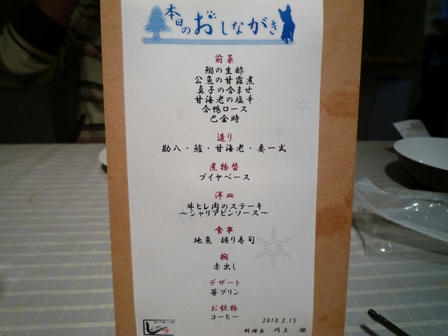 本日のおしながき
前菜
鰯の生酢
公魚の甘露煮
真子の含ませ
甘海老の塩辛
合鴨ロース
巴金時
造り
勘八・鱸・甘海老・妻一式
煮物替
ブイヤベース
洋皿
牛ヒレ肉のステーキ
〜シャリアピンソース〜
食事
地魚 握り寿司
椀
赤出し
デザート
苺プリン
お飲物
コーヒー
2010.2.15
料理長 川上